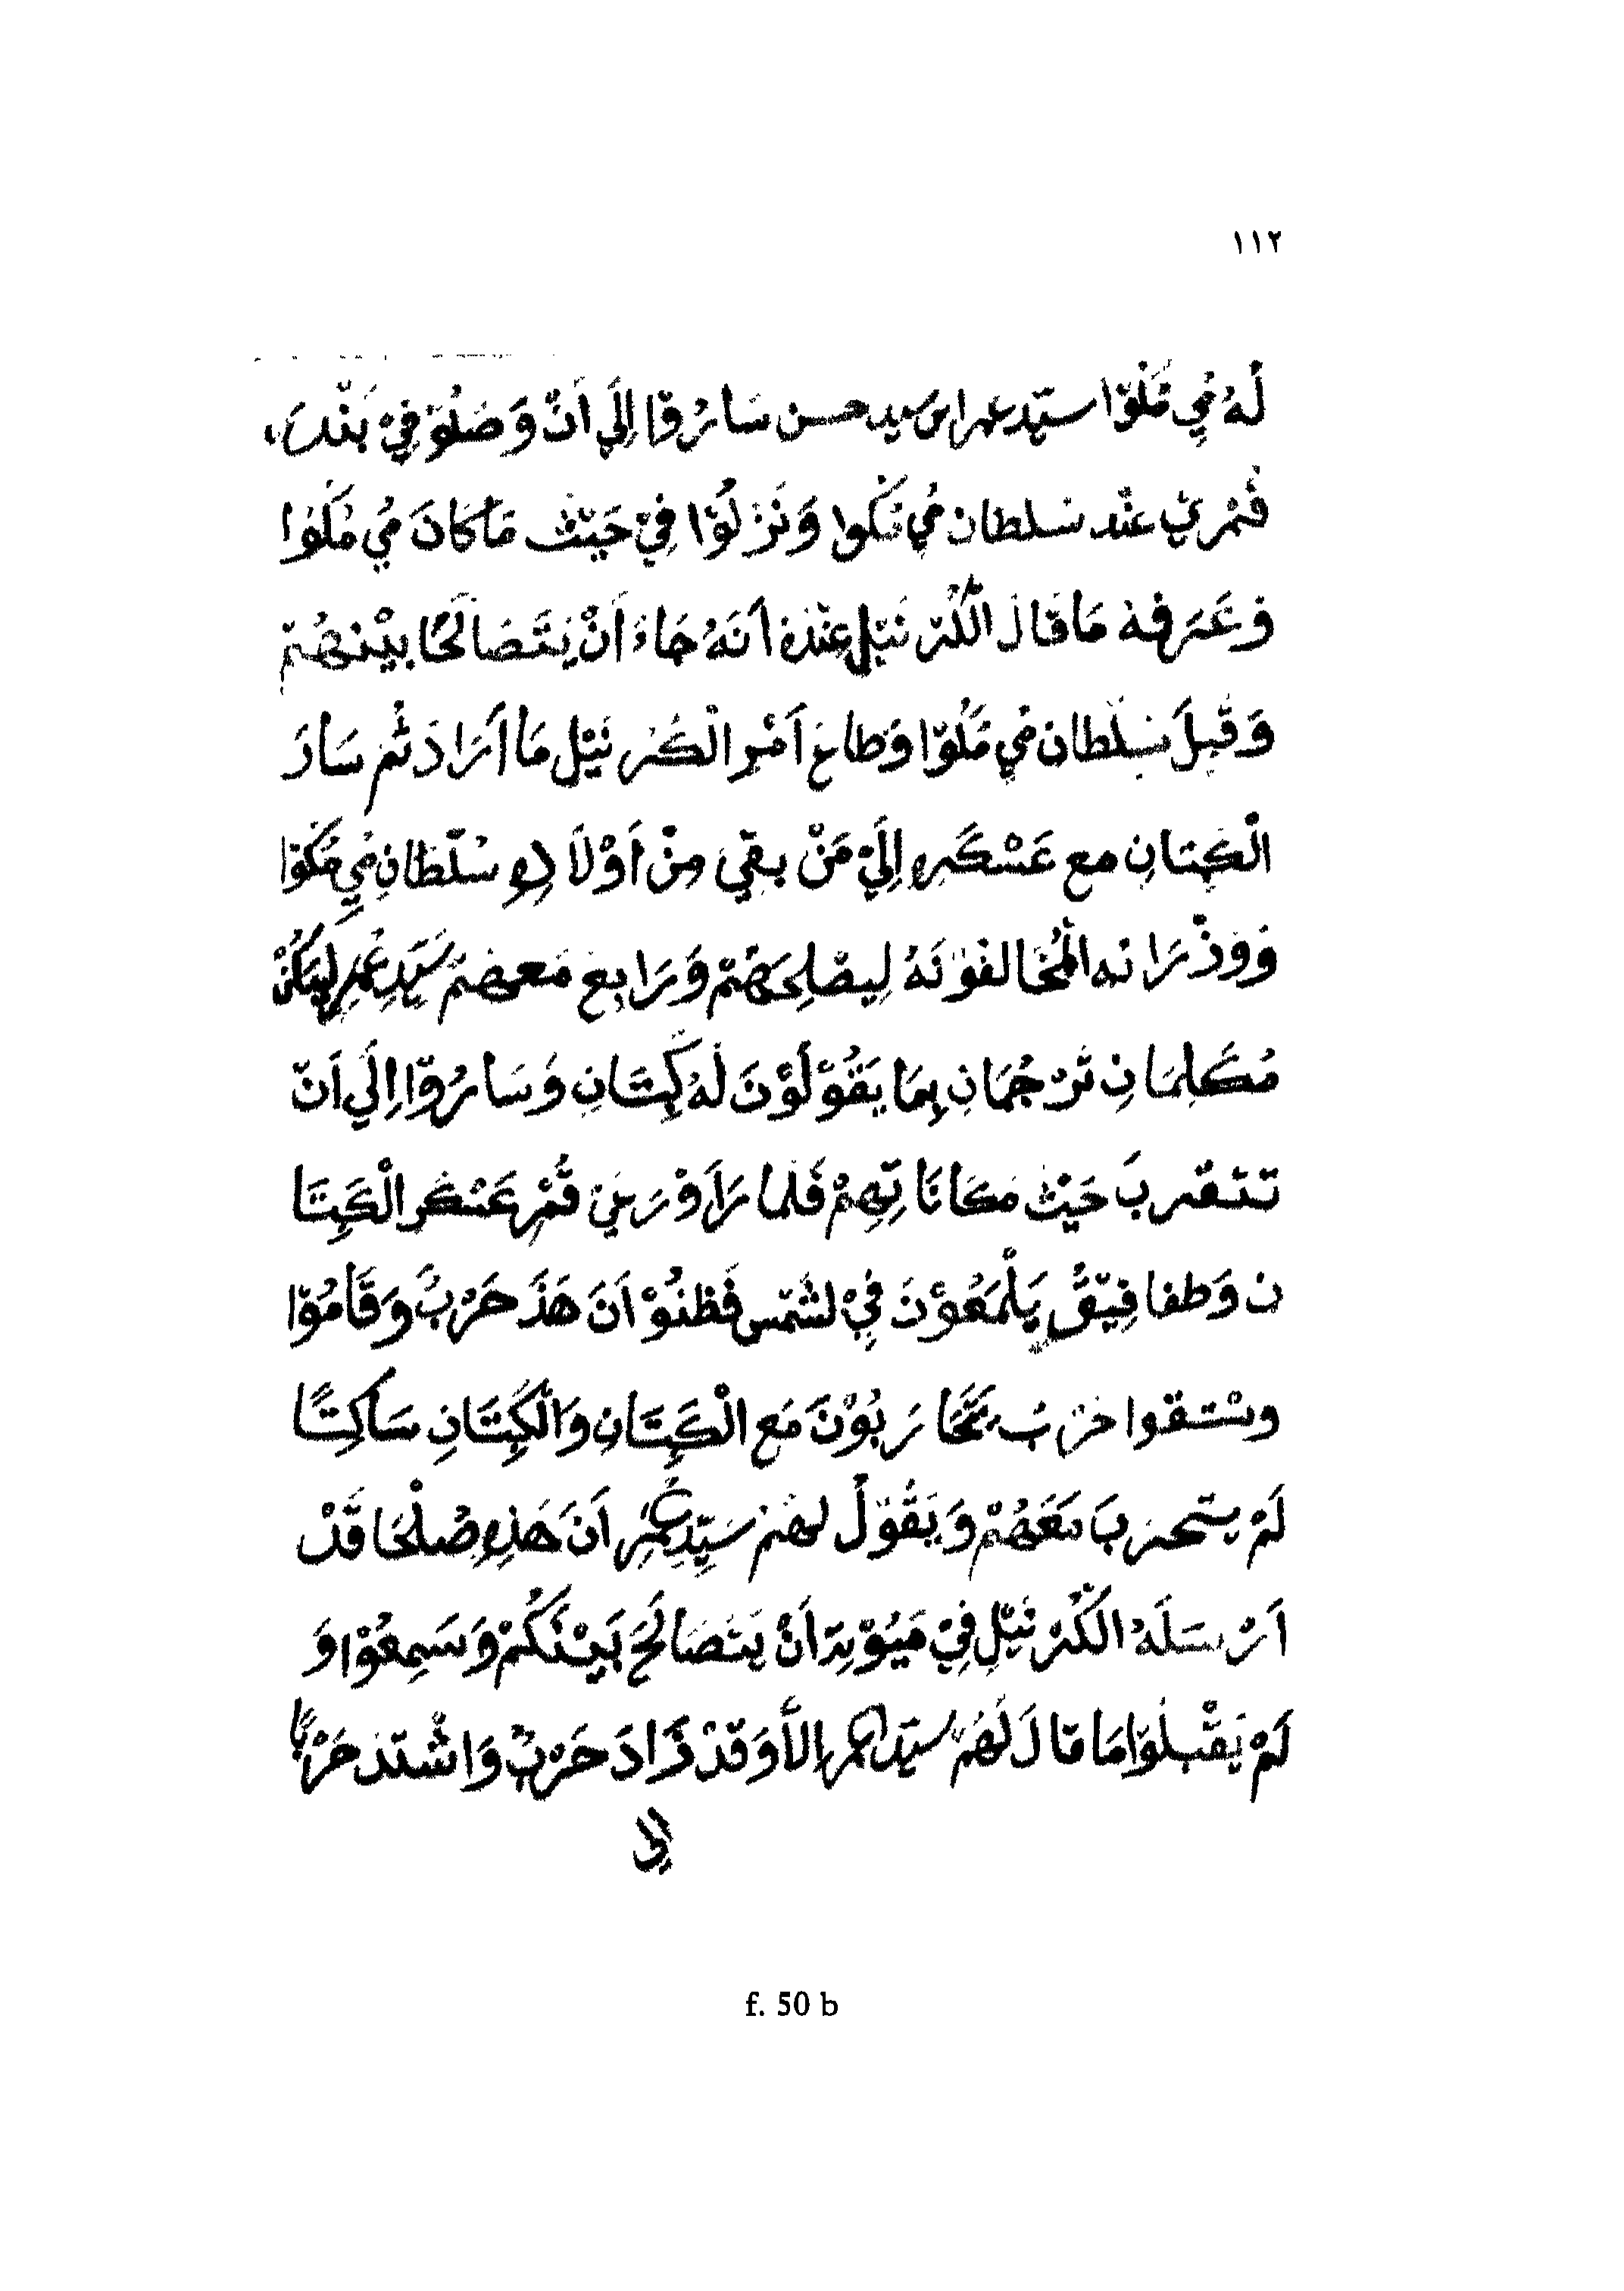 ١١٢
لَهُ مُي مَلُوْا سيّد عمر ابن سيد حسن سَارُوْا إِلَى اَنْ وَصَلُوْ فِيْ بَنْدَر
قُمْرِيْ عنْد سلطان مُي مَكُوا وَنَزَلُوْا فِيْ حَيْثْ مَا كَانَ مُي مَلُوْا
وَعَرَفهْ مَا قَالَ الْكُرْنَيْل عِنْدَهُ اَنَهُ جَاءَ اَنْ يَتَصَالَحَا بيْنهُمْ
وَقَبِلَ سلطان مُي مَلُوْا وَطَاعَ اَمْرِ الْكُرْنَيْل مَا اَرَادَ ثُم سَارَ
الْكَبِتَانِ مع عَسْكَرِهِ إِلَيْ مَنْ بقيَ مِنْ اَوْلَادِهِ سُلْطَانِ مُي مَكُوْا
وَوزْرَانه الْمُخَالفوْنَهُ لِيصْلِحَهُمْ وَرَابعْ مَعهمْ سَيّدِ عُمَرِ لِيَكُنْ
مُكَلِمَانِ تَرْجُمَانِ بِمَا يَقُوْلُوْنَ لَهُ كَبِتَانِ وَسَارُوْا اِلَي اَنْ
تتقربَ حَيْثْ مَكَانَاتِهِمْ فَلَمَا رَاَوْ رَيْيْ قُمْرِ عَسْكَر الْكَبِتَا
ن وَطفافِيْقُ يَلْمَعُوْنَ فِيْ لشَمْسِ فَظنُوْ اَنَ هَذَ حَرْبُ وَقَامُوْا
وستقوا حَرْبُ يَتَحَارَبُوْنَ مَع الْكَبِتَانِ وَالْكَبِتَانِ سَاكِتًا
لَمْ يتحربَ مَعَهُمْ وَيَقُوْلُ لهمْ سَيّدِ عُمَرِ اَنَ هَذِهِ صُلْحَا قَدْ
اَرْسَلَهُ الْكُرْنَيْلِ فِيْ مَيُوْتِ اَنْ يَتَصَالَحَ بَيْنَكُمْ وَسَمِعُوْا وَ
لَمْ يَقْبلُوْا مَا قَالَ لَهُمْ سَيّد عمر اِلاَّ وَقَدْ زَادَ حَرْبُ وَاشْتَدَ حَرْبًا
إلى
f. 50 b